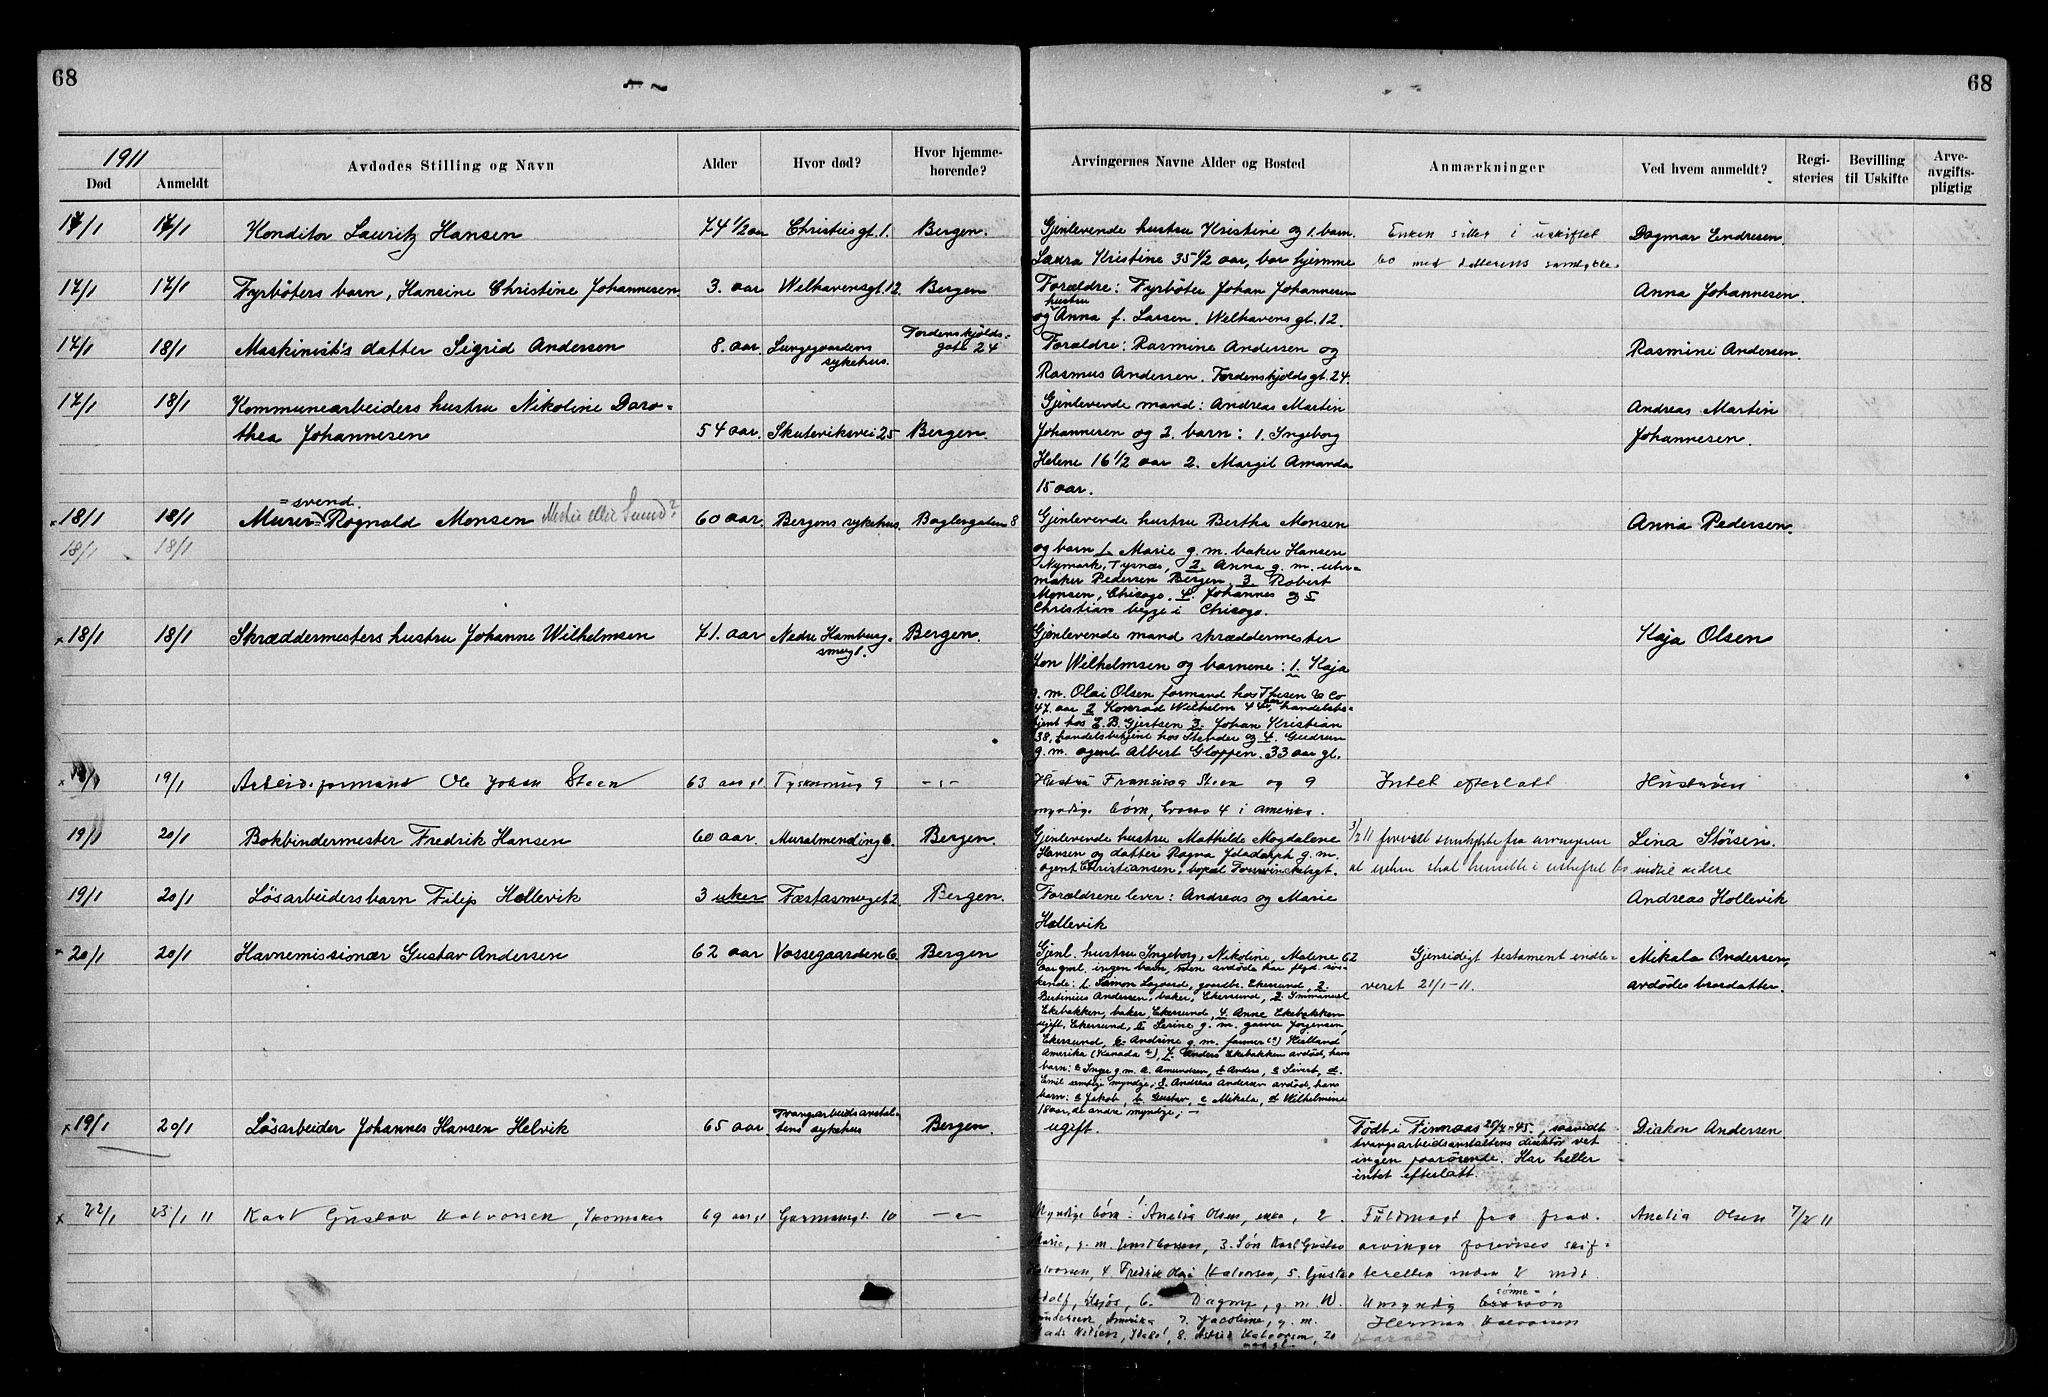 68
68
1911
Død
Anmeldt
Avdødes Stilling og Navn
Alder
Hvor død?
Hvor hjemme-
hørende?
Arvingernes Navne Alder og Bosted
Anmærkninger
Ved hvem anmeldt?
Regi-
steries
Bevilling
til Uskifte
Arve-
avgifts-
pligtig
17/1 17/1 Konditor Lauritz Hansen 74 1/2 aar Christiesgt. 1. Bergen. Gjenlevende hustru Kristine og 1. barn. Enken sitter i uskiftet Dagmar Endresen.
Laura Kristine 35 1/2 aar, bor hjemme bo med datterens samtykke.
17/1 17/1 Fyrbøters barn, Hansine Christine Johannesen. 3. aar Welhavensgt. 12. Bergen Forældre: Fyrbøter Johan Johannesen Anna Johannesen.
hustru
og Anna f. Larsen. Welhavens gt. 12.
17/1 18/1 Maskinist's datter Sigrid Andersen 8. aar Lungegaardens sykehus. Tordenskjolds-gate 24 Forældre: Rasmine Andersen og Rasmine Andersen.
Rasmus Andersen. Tordenskjolds gt. 24.
17/1 18/1 Kommunearbeiders hustru Nikoline Doro- Gjenlevende mand: Andreas Martin Andreas Martin
thea Johannesen 54 aar. Skuteviksvei 25 Bergen. Johannesen og 2. barn: 1. Ingeborg Johannesen.
Helene 16 1/2 aar 2. Margit Amanda
15 aar.
= svend.
18/1 18/1 Murer Rognald Monsen Mester eller Svend? 60 aar. Bergens sykehus. Baglergaten 8 Gjenlevende hustru Bertha Monsen Anna Pedersen.
18/1 18/1 og barn 1. Marie g. m. baker Hansen
Nymark, Tysnes, 2. Anna g. m. uhr-
maker Pedersen Bergen, 3. Robert
Monsen, Chicago. 4. Johannes og 5
Christian begge i Chicago.
18/1 18/1 Skræddermesters hustru Johanne Wilhelmsen 71. aar Nedre Hamburg-smug 1. Bergen. Gjenlevende mand skræddermester Kaja Olsen
Jon Wilhelmsen og barnene: 1. Kaja
g. m. Olai Olsen formand hos & Co
47. aar 2 Konrad Wilhelm 44 aar, handelsbe-
tjent hos E. B. Gjertsen 3. Johan Kristian
38, handelsbetjent hos Stender og 4. Gudrun
g. m. agent Albert Gloppen. 33 aar gl.
19/1 Arbeidsformand Ole Johan Steen 63 aar gl Tyskesmug 9 -"- Hustru Fransisca Steen og 9 Intet efterlatt Hustruen
myndige børn, hvorav 4 i Amerika.
19/1 20/1 Bokbindermester Fredrik Hansen 60 aar. Muralmending 6. Bergen. Gjenlevende hustru Mathilde Magdalene 3/2 11 fra arvingerne Lina Størsen.
Hansen og datter Ragna g. m.
agent Christiansen, at enken skal i uskiftet bo indtil videre
19/1 20/1 Løsarbeiders barn Filip Hollevik 3 uker Fæstesmuget 2. Bergen. Forældrene lever: Andreas og Marie Andreas Hollevik
Hollevik
20/1 20/1 Havnemissionær Gustav Andersen 62 aar Vossegaarden 6. Bergen Gjenl. hustru Ingeborg, Nikoline, Malene 62 Gjensidigt testament indle- Mikala Andersen,
aar gml. ingen barn, men avdøde har flgd. søs- veret 21/1-11. avdødes brordatter.
kende: 1. Simon gaardbr. Ekersund, 2.
Bertinius Andersen, baker, Ekersund, 3. Immanuel
Ekebakken, baker, Ekersund, 4. Anne Ekebakken
ugift, Ekersund, 5. Serine g. m. garver Jørgensen,
Ekersund, 6. Andrine g. m. farmer (?) Helland
Amerika (Kanada ?), 7. Anders Ekebakken avdød, hans
barn: a Inger g. m. A. Amundsen, b Anders, c Sivert, d.
Emil samtlige myndige, 8. Andreas Andersen avdød, hans
barn: a Jakob, b. Gustav, c Mikala, d Wilhelmine
18 aar, de andre myndige; -
19/1 20/1 Løsarbeider Johannes Hansen Helvik 65 aar. Tvangsarbeidsanstal-tens sykehus Bergen. ugift. Født i Finnaas 20/7-45., saavidt Diakon Andersen.
tvangsarbeidsanstaltens direktør vet
ingen paarørende. Har heller
intet efterlatt.
22/1 23/1 11 Karl Gustav Halvorsen, Skomaker 69 aar gl Garmannsgt. 10 -"- Myndige børn: 1 Amalia Olsen, enke, 2 Fuldmagt fra frav. Amalia Olsen 7/2 11
Marie, g. m. 3. Søn Karl Gustav arvinger forevises skif-
Halvorsen, 4 Fredrik Olai Halvorsen, 5. Gustav teretten inden 2 mdr.
Adolf, 6. Dagny, g. m. W. Umyndig sønne-søn
Andersen, Amerika 7. Jacoline, g. m. Herman Halvorsen
Mads Nilsen, 8. Astrid Halvorsen, 20 Harald
aar gl.